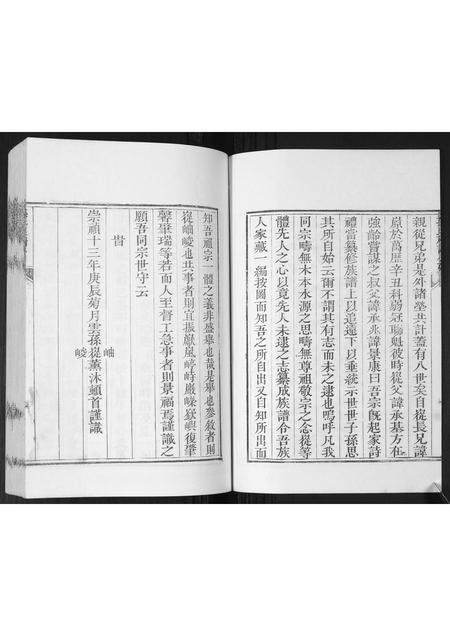 親從兄弟是外諸塋共計蓋有八世矣自從長兄諱
原於萬歷辛丑科弱冠聯魁彼時從父諱承基方在
強齡嘗謀之叔父諱承兆諱景康曰吾宗旣起家詩
禮當纂修族譜上以追遠下以垂統示世世子孫思
其所自始云爾不謂其有志而未之逮也嗚呼凡我
同宗疇無木本水源之思疇無尊祖敬宗之念從等
體先人之心以竟先人未逮之志纂成族譜令吾族
人家藏一編按圖而知吾之所自出又自知所出而
知吾祖宗一體之義非盛舉也哉是舉也參敘者則
從岫峻也共事者則宜振巖嵐崢嶸嶽嶼復肇
馨肇瑞等若而人至督工急事者則景福焉謹識之
願吾同宗世守云
旹
崇禎十三年庚辰菊月雲孫從岫峻薰沐頓首謹識